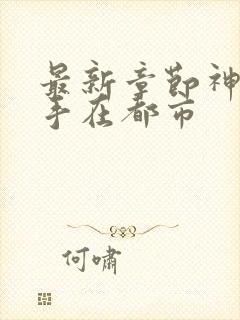 最新章节神
手在都市
何啸